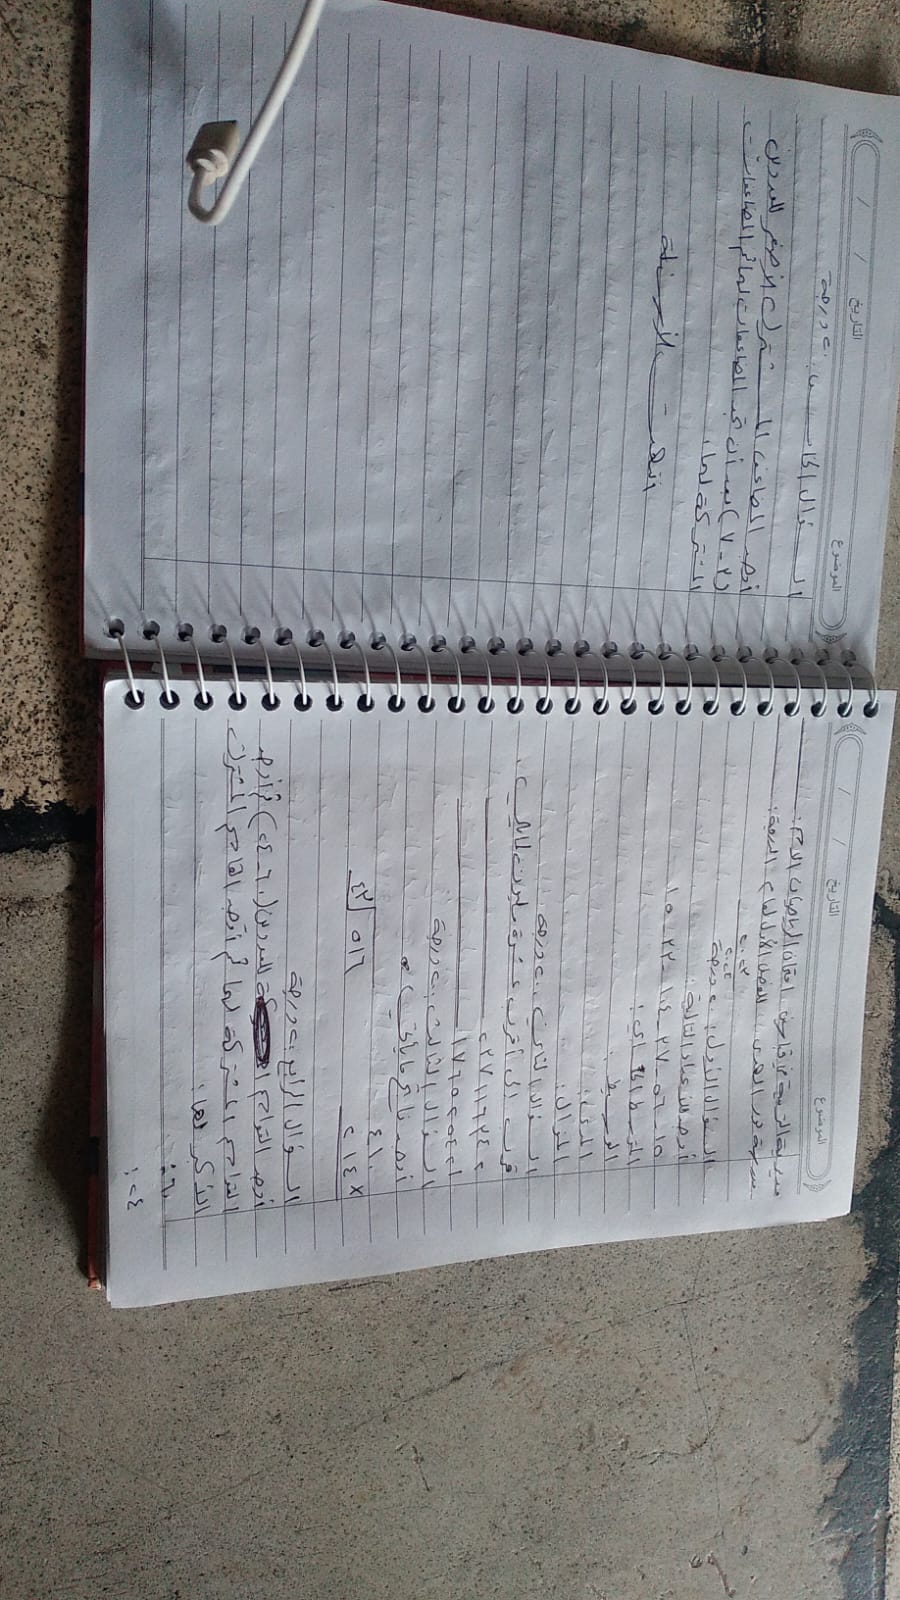 الموضوع التاريخ / /
مديرية التربية في امتحان الرياضيات الاسم:
مدرسة نور الهدى للفصل الأول لعام الدرجة:
٢٠٢٣
٢٠٢٤
السؤال الأول: ٢٠ درجة
أوجد للأعداد التالية:
١٥-٥٦-٢٧-١٠٤-٢٢-١٥
المتوسط الحسابي:
الوسيط:
المدى:
المنوال:
السؤال الثاني: ٢٠ درجة
قرب إلى أقرب عشرة مليون لمايلي:
٢٣٧١١٦٣٤٢
١٧٦٥٢٥٤٢١
السؤال الثالث: ٢٠ درجة
أوجد ناتج ما يأتي:
٤١٠
× ٢١٤
٤٣ ٥١٦
السؤال الرابع ٢٠ درجة
أوجد القواسم للعددين (٦٠-٢٤) ثم أوجد
القواسم المشتركة لهما ثم أوجد القاسم المشترك
الأكبر لهما:
٦٠:
٢٤:
الموضوع التاريخ / /
السؤال الخامس: ٢٠ درجة
أوجد المضاعف المشترك الأصغر للعددين
(٣-٧) بعد أن تجد المضاعفات لهما ثم المضاعفات
المشتركة لهما:
انتهت الأسئلة